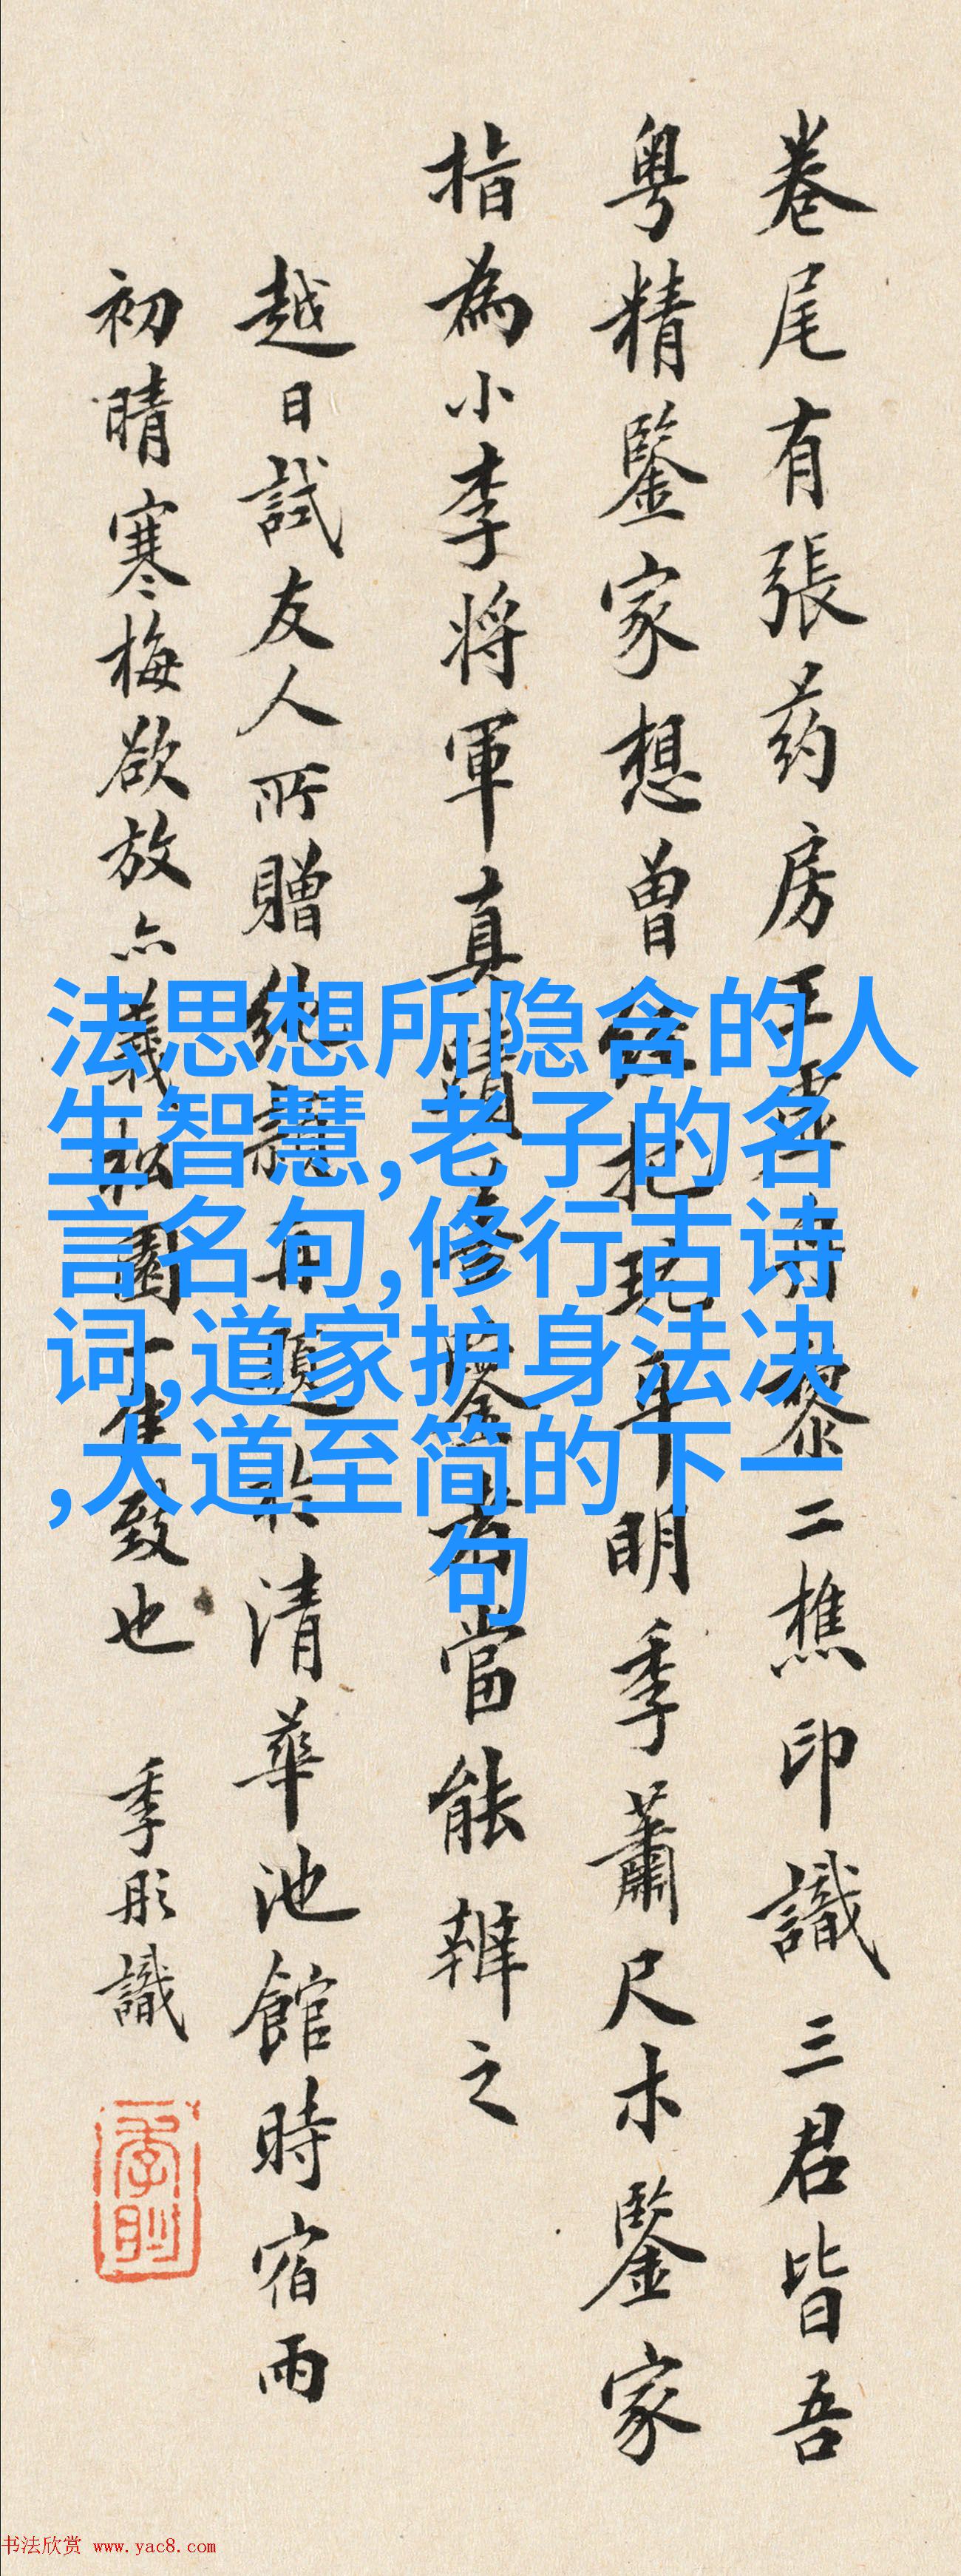 卷尾有張药房王霽舟黎二樵印識三君皆吾
粵精鑒家想曾把玩耳明季蕭尺木鑒家
指為小李將軍真蹟鑒者當能辨之
越日試友人所贈純穎再題於清華池館時宿雨
初晴寒梅欲放亦羲松園一佳致也 季彤識
法思想所隐含的人
生智慧,老子的名
言名句,修行古诗
词,道家护身法决
,大道至简的下一
句
书法欣赏 www.yac8.com